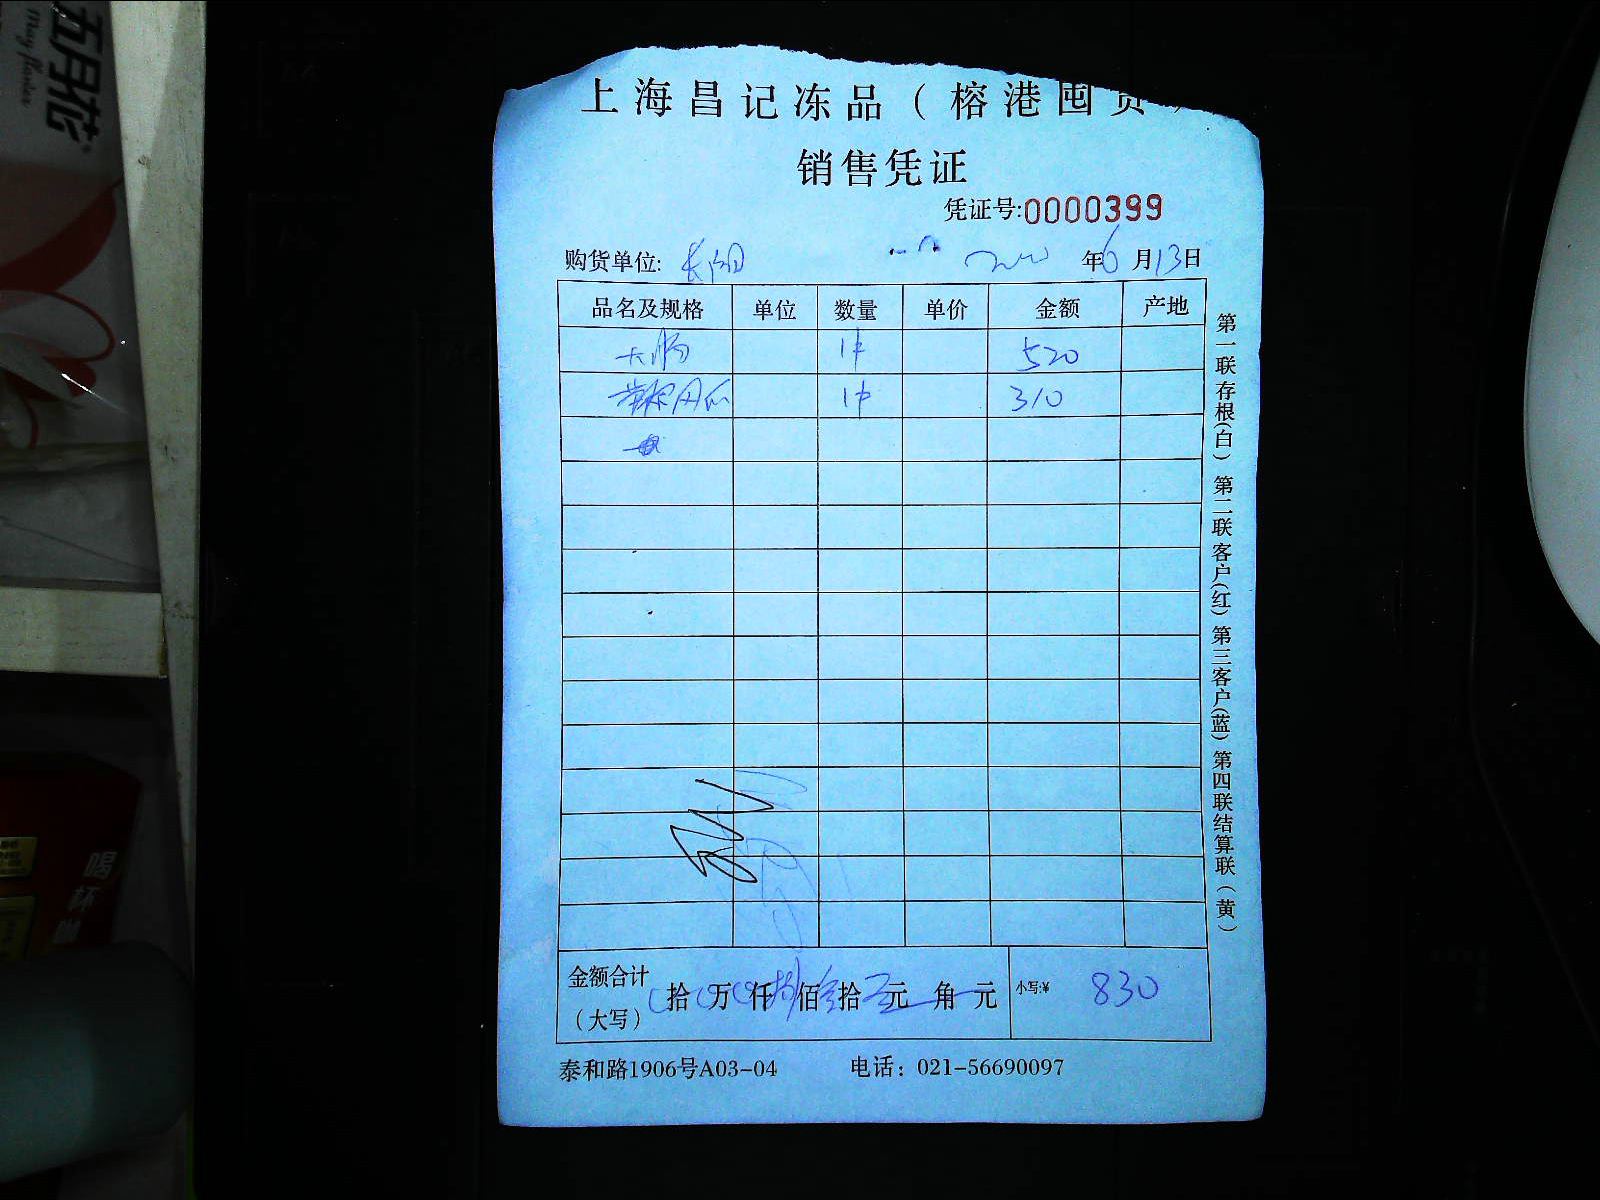 五月花
May flower
上海昌记冻品（榕港囤货）
销售凭证
凭证号:0000399
购货单位: 长阳 年6月13日
品名及规格 单位 数量 单价 金额 产地
大肠 1件 520
1件 310
金额合计（大写） 拾 万 仟 捌佰叁拾 元 角 元 小写:¥ 830
泰和路1906号A03-04 电话：021-56690097
第一联存根(白) 第二联客户(红) 第三客户(蓝) 第四联结算联(黄)
喝
杯